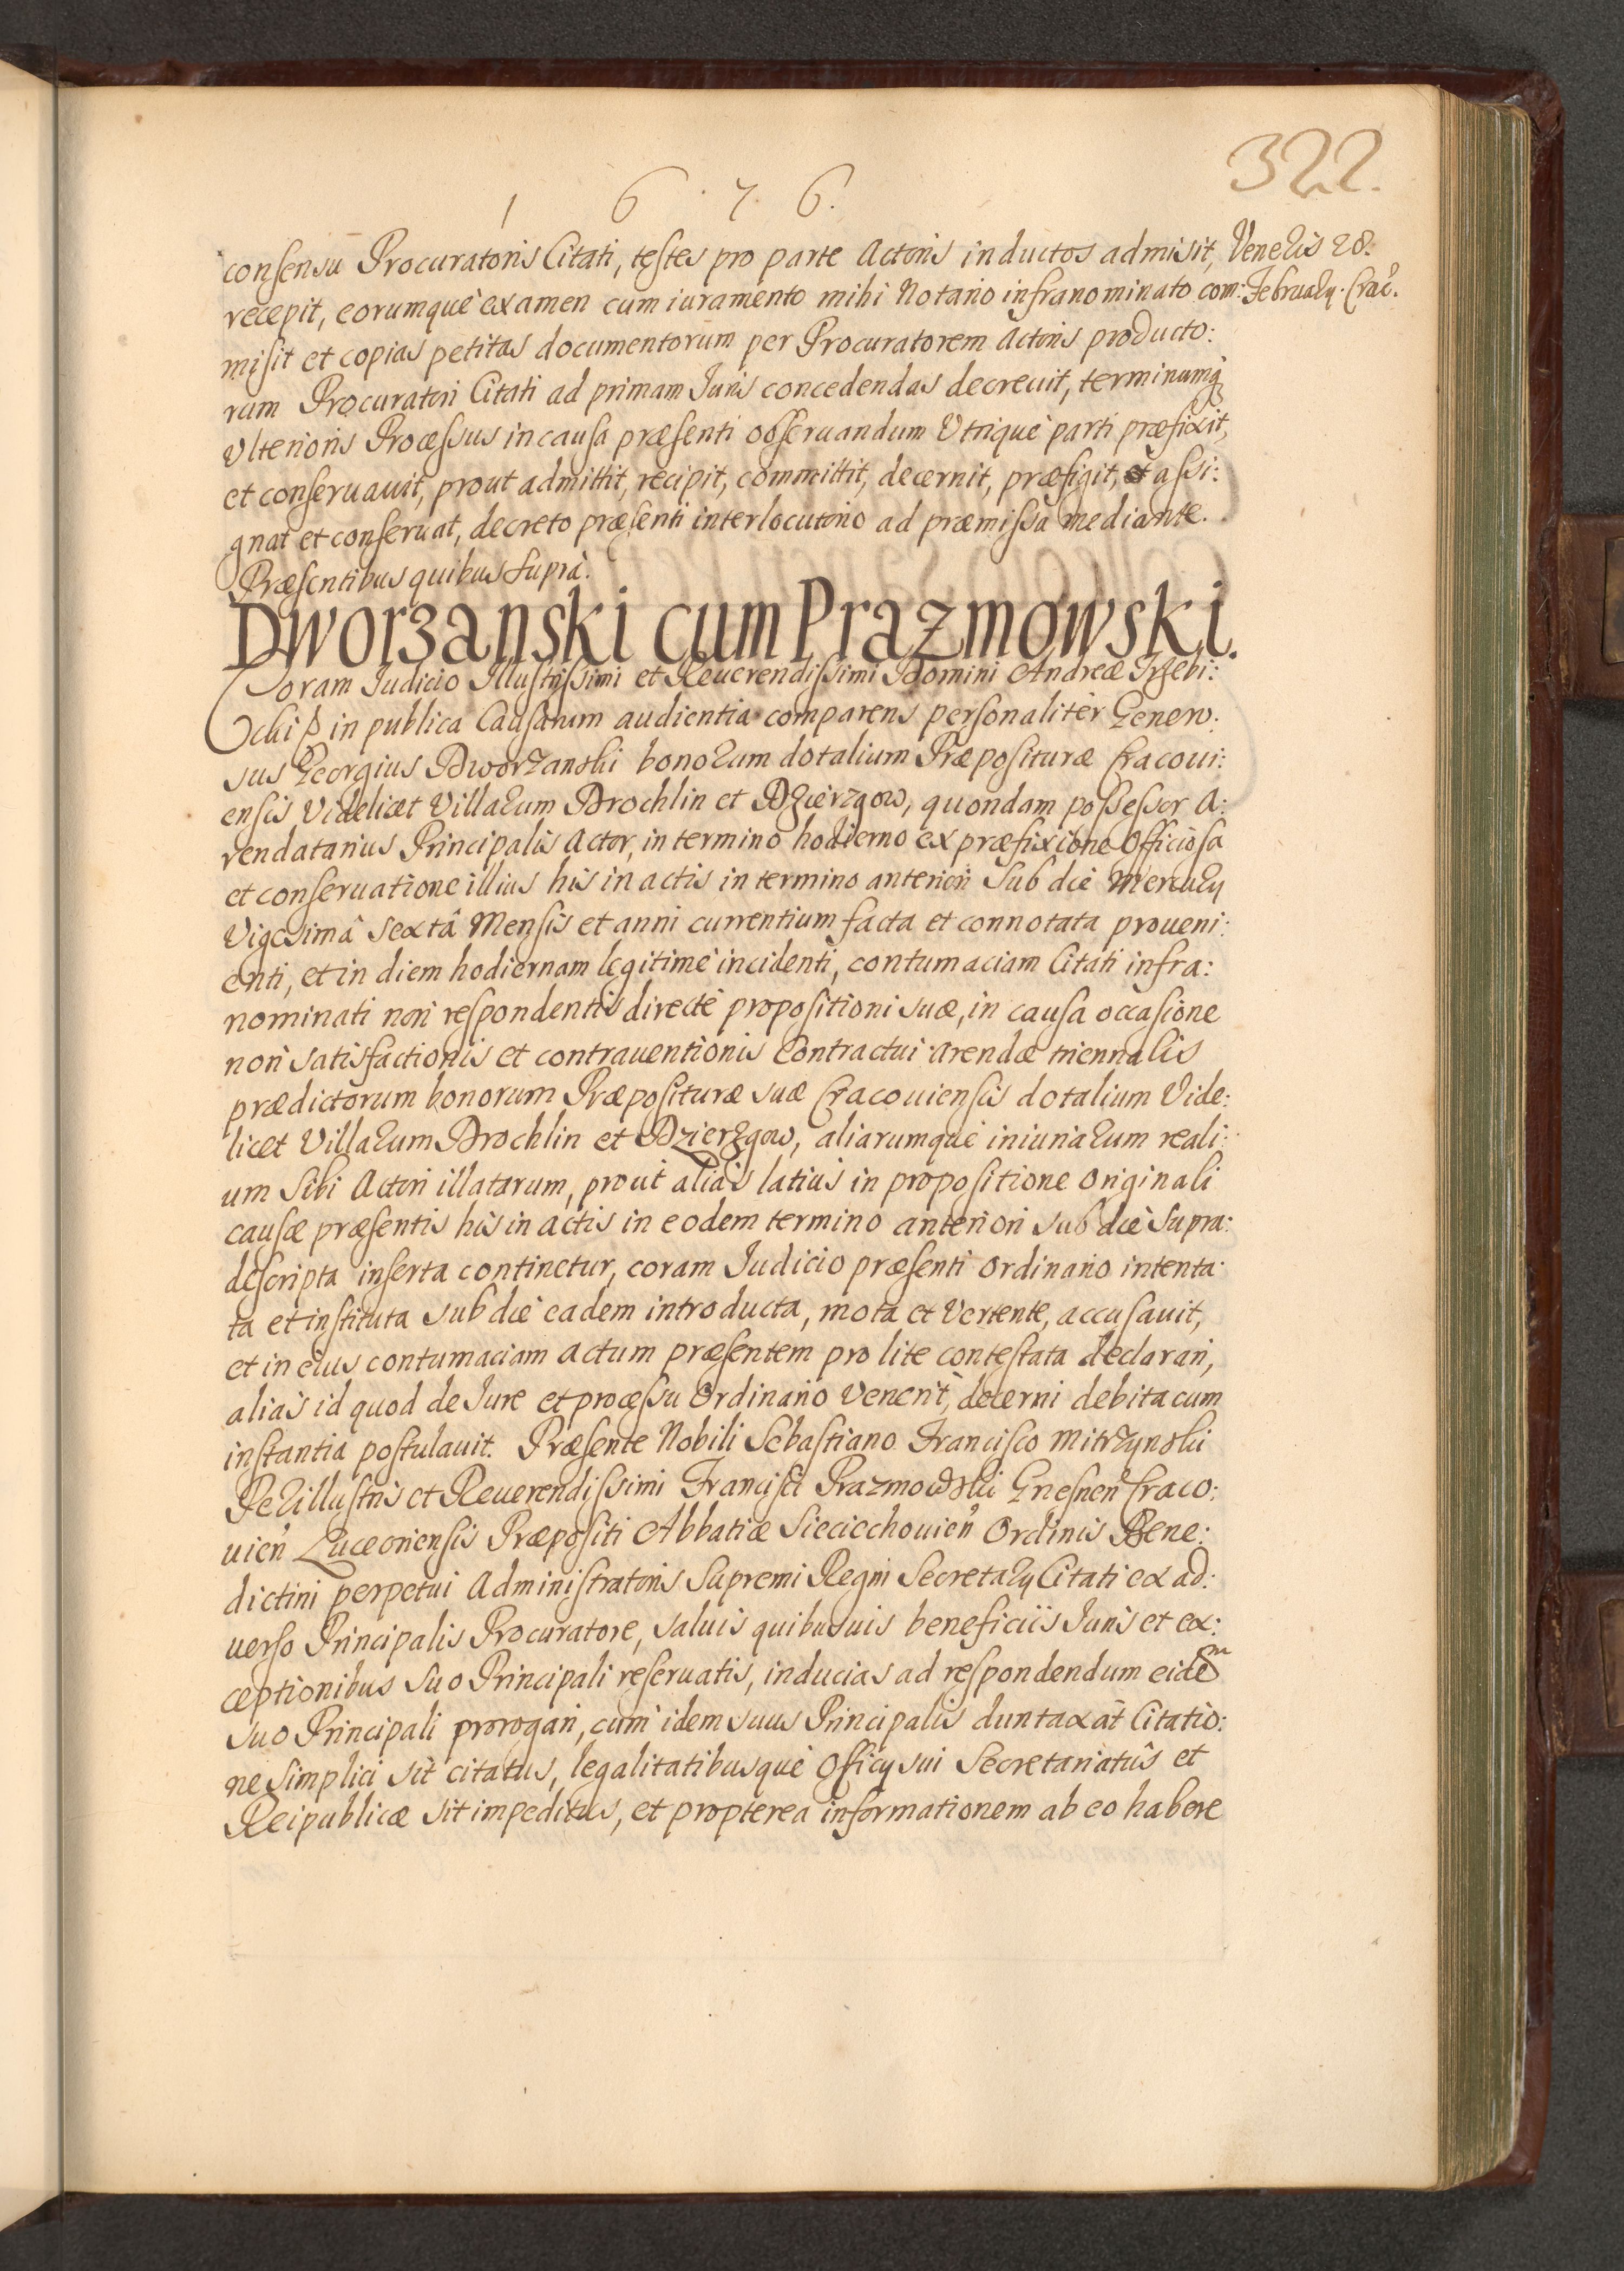 322.
1 6 7. 6.
consensu Procuratoris Citati, testes pro parte Actoris inductos admisit,
Veneris 28.
recepit, eorumque examen cum iuramento mihi Notario infranominato com:
February. Crac.
misit et copias petitas documentorum per Procuratorem Actoris producto:
rum Procuratori Citati ad primam Juris concedendas decreuit, terminumq
Vlterioris Processus in causa præsenti obseruandum Vtrique parti præfixit,
et conseruauit, prout admittit, recipit, committit, decernit, præfigit, et assi:
gnat et conseruat, decreto præsenti interlocutorio ad præmissa mediante.
Præsentibus quibus supra.
Dworzanski cum Prazmowski.
Coram Judicio Illustrissimi et Reuerendissimi Domini Andreæ Trzebi:
cki in publica Causarum audientia comparens personaliter Genero:
sus Georgius Dworzanski bonorum dotalium Præposituræ Cracoui:
ensis Videlicet Villarum Drochlin et Dzierzgow, quondam possessor A:
rendatarius Principalis Actor, in termino hodierno ex præfixione Officiosa
et conseruatione illius his in actis in termino anteriori Sub die Mercury
Vigesimâ sextâ Mensis et anni currentium facta et connotata proueni:
enti, et in diem hodiernam legitime incidenti, contumaciam Citati infra:
nominati non respondentis directe propositioni suæ, in causa occasione
non satisfactionis et contrauentionis Contractui Arendæ triennalis
prædictorum bonorum Præposituræ suæ Cracouiensis dotalium Vide:
licet Villarum Drochlin et Dzierzgow, aliarumque iniuriarum reali:
um Sibi Actori illatarum, prout alias latius in propositione Originali
causæ præsentis his in actis in eodem termino anteriori sub die Supra:
descripta inserta continetur, coram Judicio præsenti Ordinario intenta:
ta et instituta sub die eadem introducta, mota et Vertente, accusauit,
et in eius contumaciam actum præsentem pro lite contestata declarari,
alias id quod de Jure et processu Ordinario Venerit, decerni debita cum
instantia postulauit. Præsente Nobili Sebastiano Francisco Mitrzynski
Perillustris et Reuerendissimi Francisci Prazmowski Gnesnen Craco:
uien Luceoriensis Præpositi Abbatiæ Sieciechouien Ordinis Bene:
dictini perpetui Administratoris Supremi Regni Secretary Citati ex ad:
uerso Principalis Procuratore, saluis quibusuis beneficiis Juris et ex:
ceptionibus Suo Principali reseruatis, inducias ad respondendum eidem
suo Principali prorogari, cum idem suus Principalis duntaxat Citatio:
ne simplici sit citatus, legalitatibusque Officy sui Secretariatûs et
Reipublicæ sit impeditus, et propterea informationem ab eo habere